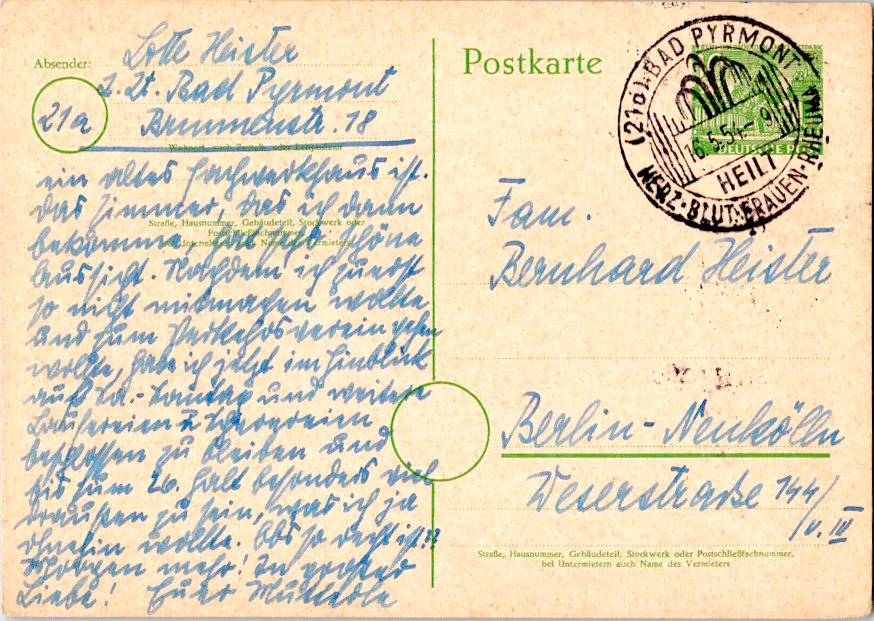 Absender:
Lotte Heister
z. Zt. Bad Pyrmont
21a Brunnenstr. 18
Wohnort, auch Zustell- oder Leitpostamt
ein altes Fachwerkhaus ist.
Das Zimmer, das ich dann
Straße, Hausnummer, Gebäudeteil, Stockwerk oder
Postschließfachnummer,
bei Untermietern auch Name des Vermieters
bekomme, schöne
Aussicht. Nachdem ich zuerst
so nicht mitmachen wollte
und zum Verkehrsverein gehen
wollte, habe ich jetzt im Hinblick
auf Sa.-Sonntag und weitere
Laufereien u. Scherereien
beschlossen zu bleiben und
bis zum 26. halt besonders viel
draußen zu sein, was ich ja
ohnehin wollte. Obs so recht ist??
Morgen mehr! In großer
Liebe! Euer Mutterle
Postkarte
DEUTSCHE POST
(21a) BAD PYRMONT
16.5.54.-9
HEILT
HERZ·BLUT·FRAUEN·RHEUMA
Fam.
Bernhard Heister
Berlin-Neukölln
Weserstraße 144/
v. IV
Straße, Hausnummer, Gebäudeteil, Stockwerk oder Postschließfachnummer,
bei Untermietern auch Name des Vermieters